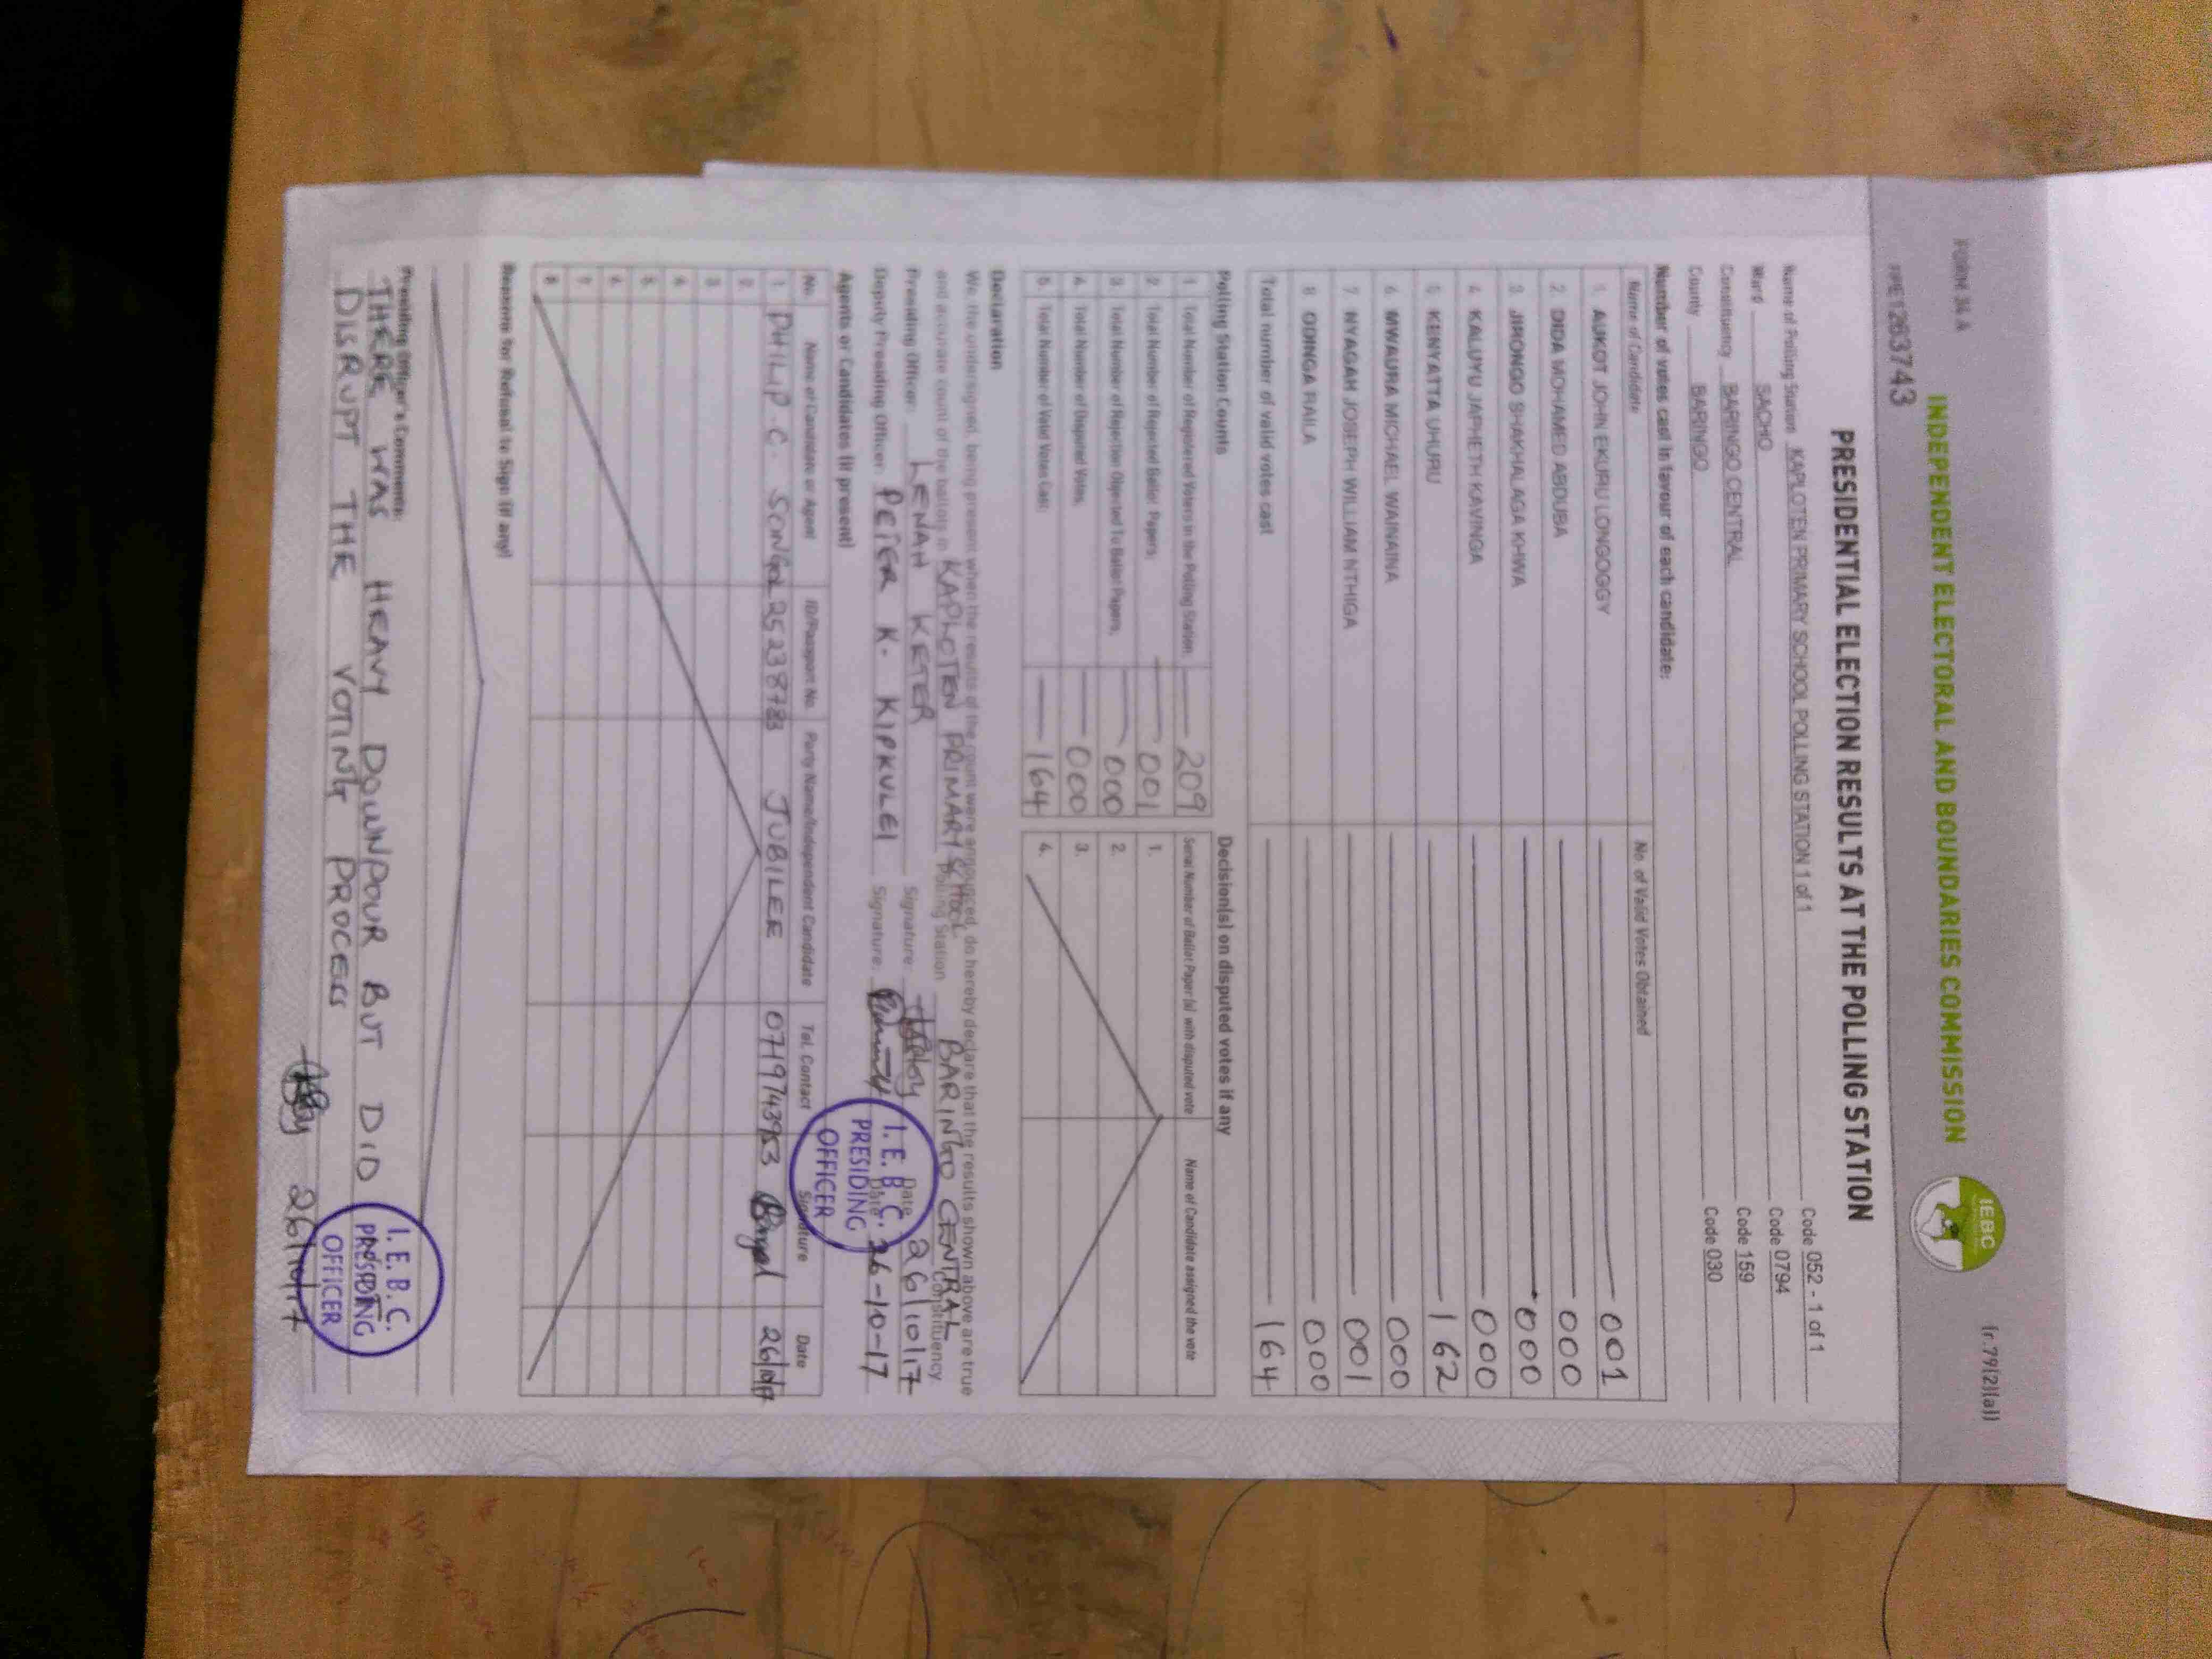 FORM 34 A
(r.79(2)(a))
INDEPENDENT ELECTORAL AND BOUNDARIES COMMISSION
IEBC
PRE1263743
PRESIDENTIAL ELECTION RESULTS AT THE POLLING STATION
Name of Polling Station KAPLOTEN PRIMARY SCHOOL POLLING STATION 1 of 1 Code 052 - 1 of 1
Ward SACHO Code 0794
Constituency BARINGO CENTRAL Code 159
County BARINGO Code 030
Number of votes cast in favour of each candidate:
Name of Candidate No. of Valid Votes Obtained
1. AUKOT JOHN EKURU LONGOGGY 001
2. DIDA MOHAMED ABDUBA 000
3. JIRONGO SHAKHALAGA KHWA 000
4. KALUYU JAPHETH KAVINGA 000
5. KENYATTA UHURU 162
6. MWAURA MICHAEL WAINAINA 000
7. NYAGAH JOSEPH WILLIAM NTHIGA 001
8. ODINGA RAILA 000
Total number of valid votes cast 164
Polling Station Counts
1. Total Number of Registered Voters in the Polling Station 209
2. Total Number of Rejected Ballot Papers 001
3. Total Number of Rejection Objected To Ballot Papers 000
4. Total Number of Disputed Votes 000
5. Total Number of Valid Votes Cast 164
Decision(s) on disputed votes if any
Serial Number of Ballot Paper (s) with disputed vote Name of Candidate assigned the vote
1.
2.
3.
4.
Declaration
We, the undersigned, being present when the results of the count were announced, do hereby declare that the results shown above are true
and accurate count of the ballots in KAPLOTEN PRIMARY SCHOOL Polling Station BARINGO CENTRAL Constituency.
Presiding Officer: LENAH KETER Signature: Date 26/10/17
Deputy Presiding Officer: PETER K. KIPKULEI Signature: Date 26-10-17
I. E. B. C.
PRESIDING
OFFICER
Agents or Candidates (if present)
No. Name of Candidate or Agent ID/Passport No. Party Name/Independent Candidate Tel. Contact Signature Date
1. PHILIP C. SONGOL 25238783 JUBILEE 0719743953 26/10/17
2.
3.
4
5.
6.
7.
8
Reasons for Refusal to Sign (if any)
Presiding Officer's Comments:
THERE WAS HEAVY DOWNPOUR BUT DID
DISRUPT THE VOTING PROCESS
26/10/17
I. E. B. C.
PRESIDING
OFFICER